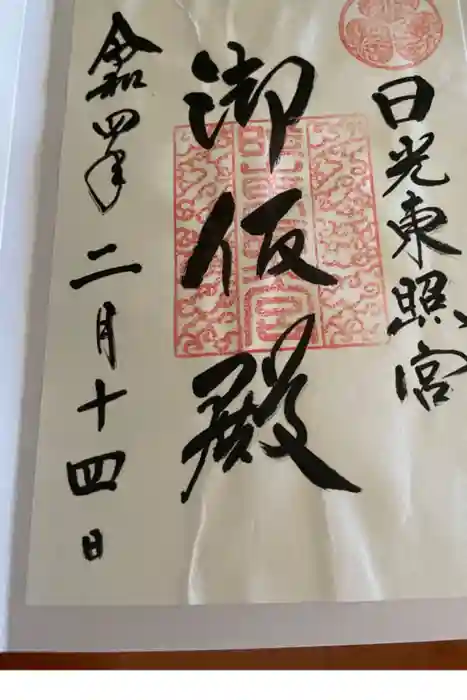 日光東照宮
御仮殿
令和四年
二月十四日